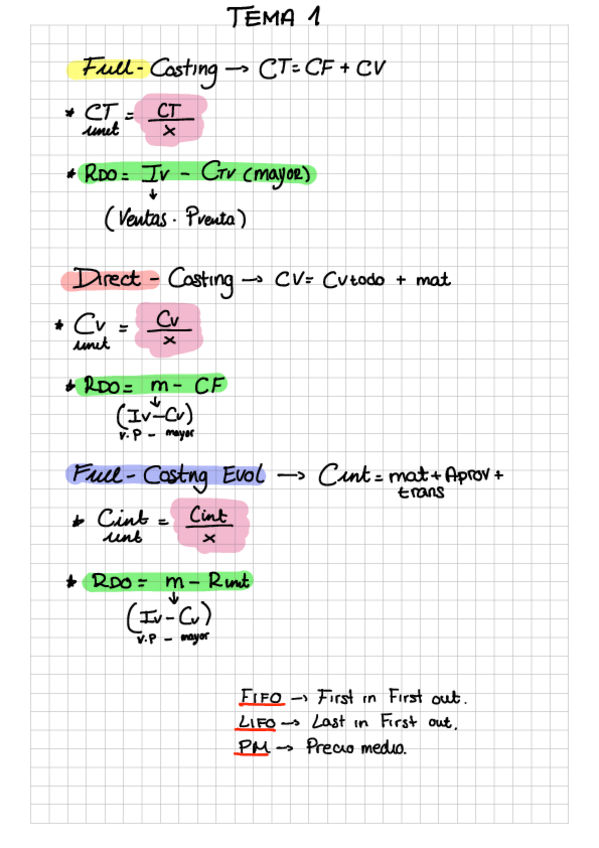 TEMA 1
Full-Costing → CT = CF + CV
* CT unit = CT / x
* RDO = Iv - CTV (mayor)
↓
(Ventas · Pventa)
Direct - Costing → CV = Cvtodo + mat
* Cv unit = Cv / x
* RDO = m - CF
↓
(Iv-Cv)
v.P - mayor
Full - Costng Evol → Cint = mat + Aprov +
trans
* Cint unt = Cint / x
* RDO = m - Rint
↓
(Iv - Cv)
v.P - mayor
FIFO → First in First out.
LIFO → Last in First out.
PM → Precio medio.